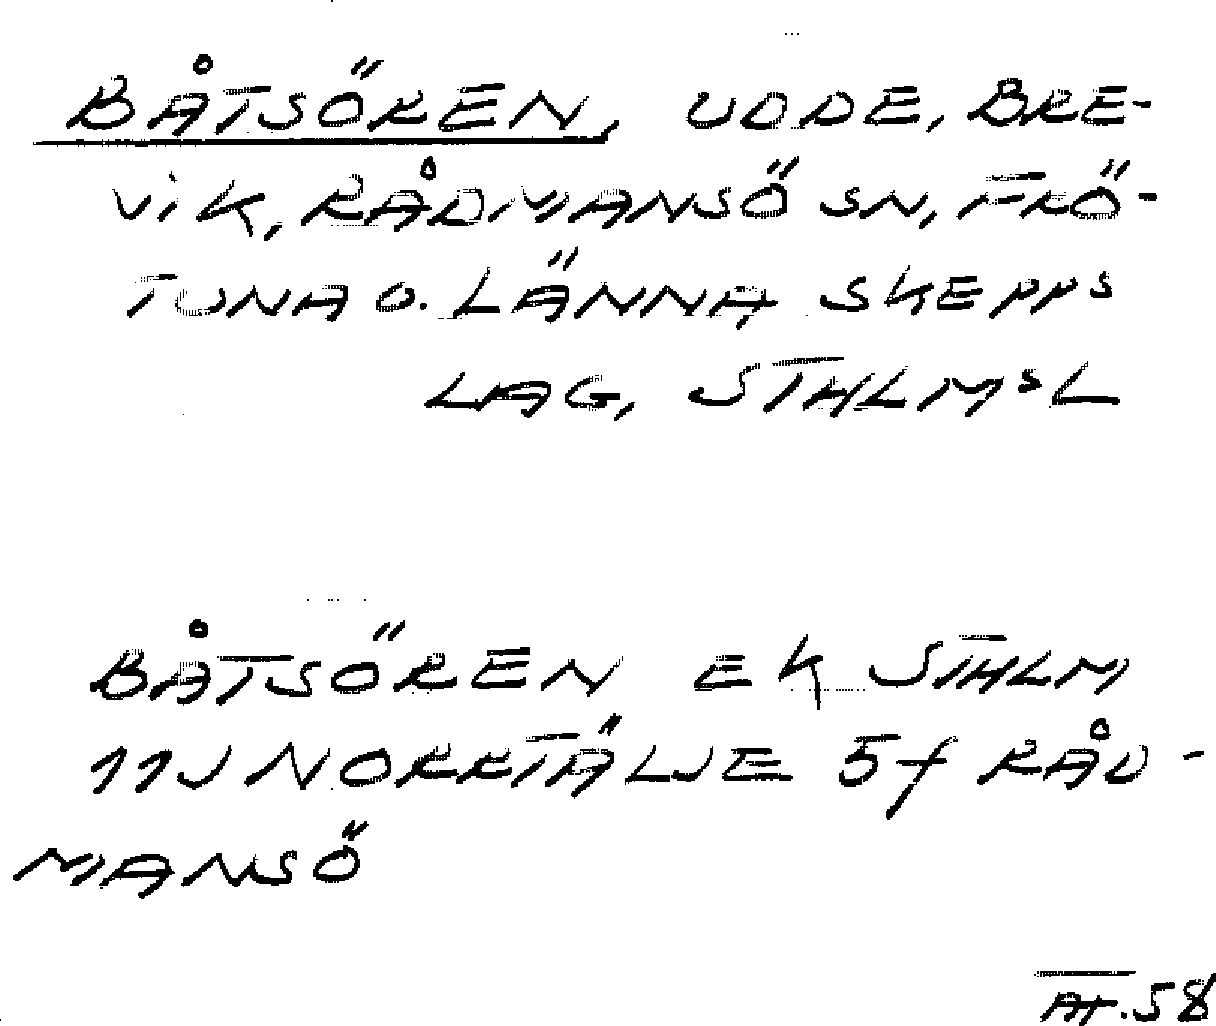 BÅTSÖREN, UDDE, BRE-
VIK, RÅDMANSÖ SN, FRÖ-
TUNA O. LÄNNA SKEPPS
LAG, STHLMSL
BÅTSÖREN EK STHLM
11J NORRTÄLJE 5f RÅD-
MANSÖ
AT. 58